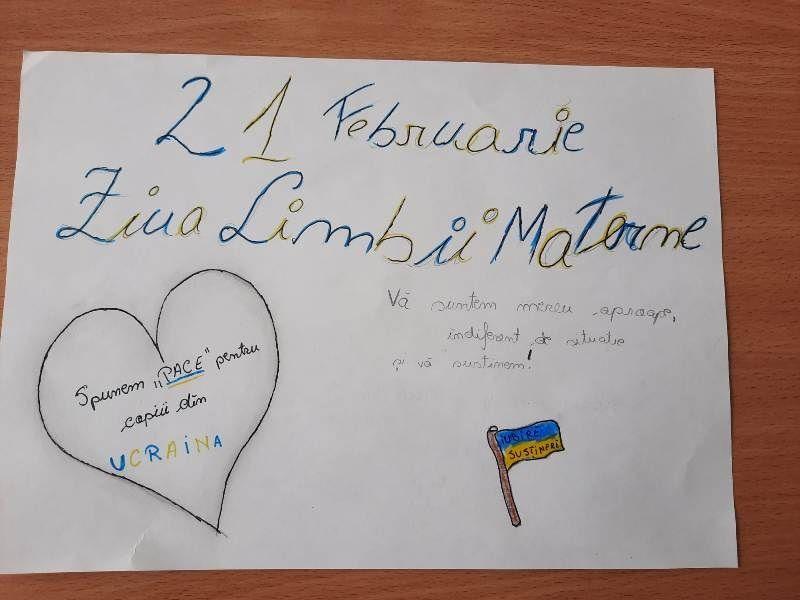 21 Februarie
Ziua Limbii Materne
Spunem „PACE" pentru
copiii din
UCRAINA
Vă suntem mereu aproape,
indiferent de situație
și vă susținem!
IUBIRE
SUSȚINERI